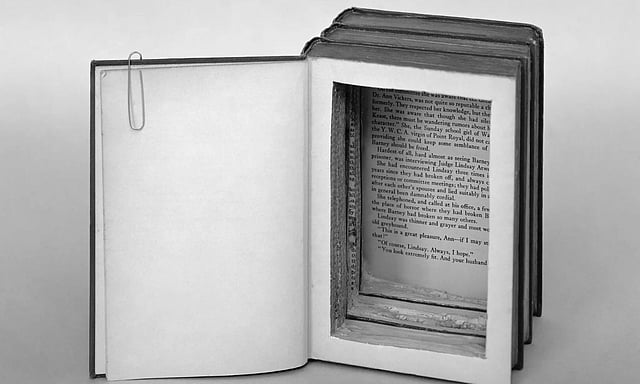 Dr. Ann Vickers, was not quite so reputable a
formerly. They respected her knowledge, but the
her. She was aware that though she had
there must be wandering rumors about
character." She, the Sunday school girl of
the Y. W. C. A. virgin of Point Royal, did not
providing she could keep some semblance of
Barney should be freed.
Hardest of all, hard almost as seeing Barney
prisoner, was interviewing Judge Lindsay
She had encountered Lindsay three times
years since they had broken off, and always
receptions or committee meetings; they had
after each other's spouses and lied suitably in
in general been damnably cordial.
She telephoned, and called at his office, a
the place of horror where they had broken
where Barney had broken so many others.
Lindsay was thinner and grayer and most
old greyhound.
"This is a great pleasure, Ann—if I may
that!"
"Of course, Lindsay. Always, I hope."
"You look extremely fit. And your husband